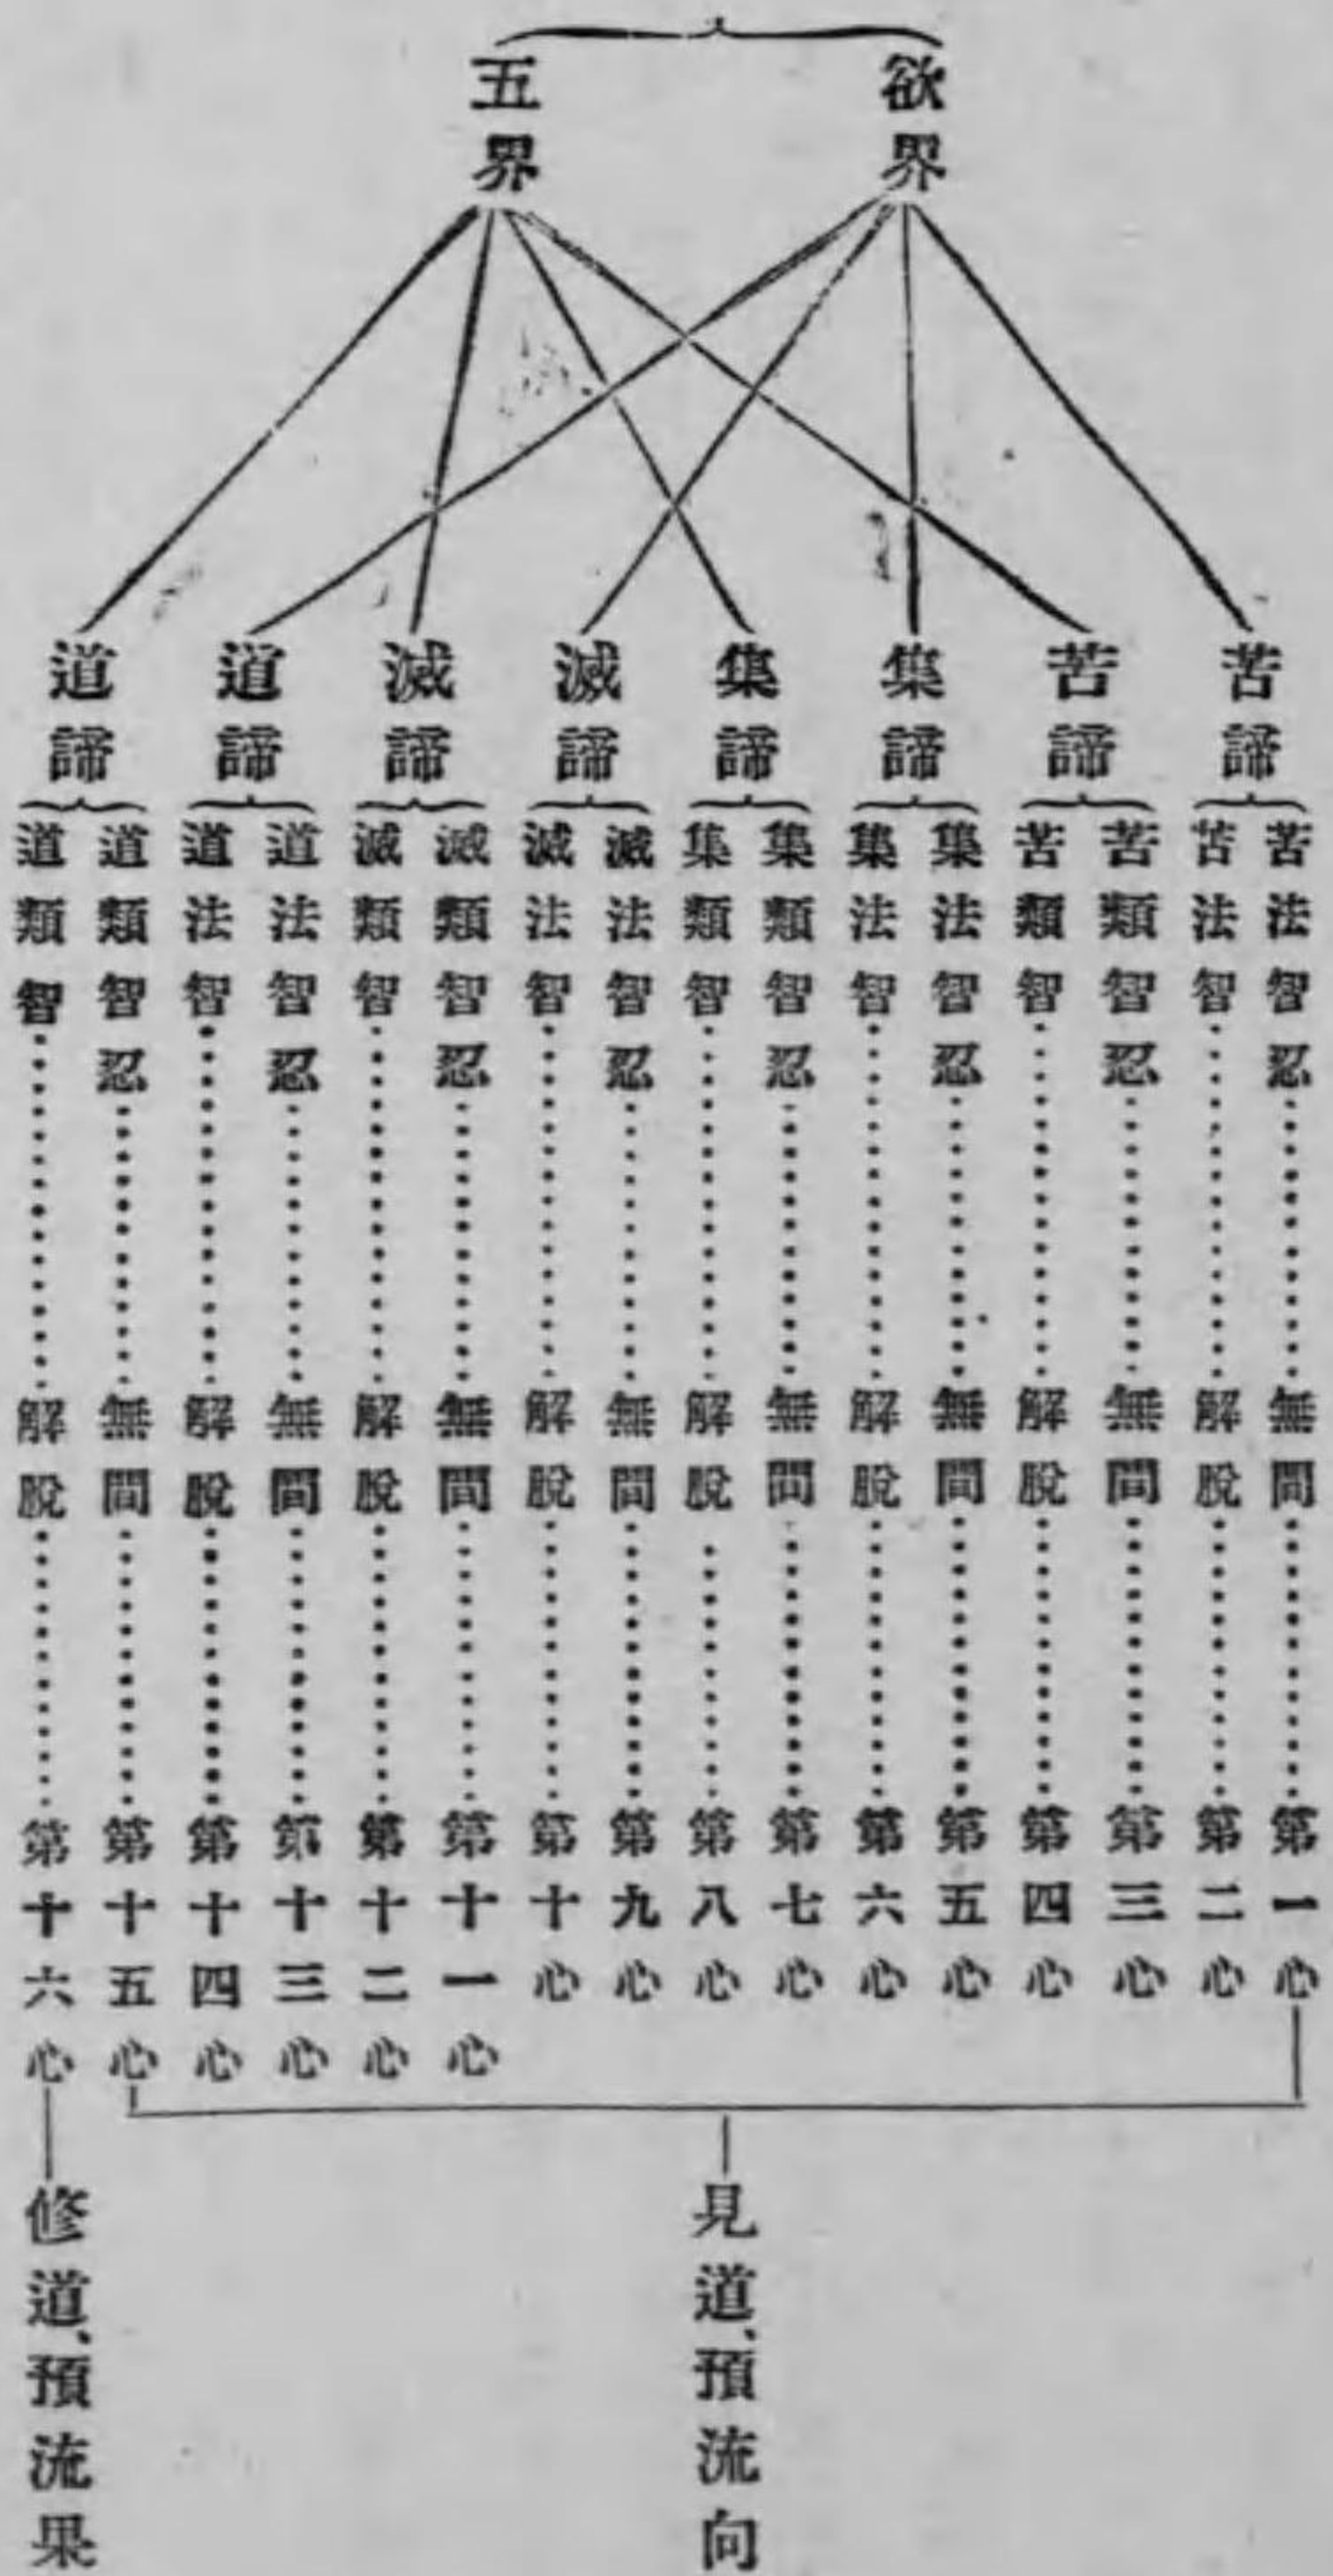 欲界
五界
苦諦
苦諦
集諦
集諦
滅諦
滅諦
道諦
道諦
苦法智忍………無間………第一心
苦法智………解脫………第二心
苦類智忍………無間………第三心
苦類智………解脫………第四心
集法智忍………無間………第五心
集法智………解脫………第六心
集類智忍………無間………第七心
集類智………解脫………第八心
滅法智忍………無間………第九心
滅法智………解脫………第十心
滅類智忍………無間………第十一心
滅類智………解脫………第十二心
道法智忍………無間………第十三心
道法智………解脫………第十四心
道類智忍………無間………第十五心
道類智………解脫………第十六心
見道、預流向
修道、預流果